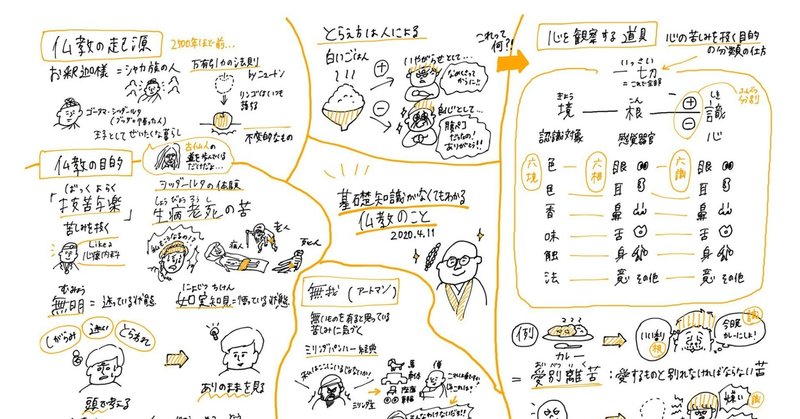 仏教の起源
2500年ほど前…
お釈迦様=シャカ族の人
万有引力の法則
by ニュートン
リンゴはいつも落ちる
ゴータマ・シッダールタ
王子としてぜいたくな暮らし
不変的なもの
仏教の目的
ばっくよらく
「抜苦与楽」
苦しみを抜く
Like a
心療内科
シッダールタの体験
しょうびょうろうし
生病老死の苦
病人
老人
死人
むみょう
無明=迷っている状態
にょじつちけん
如実知見=悟っている状態
しがらみ
迷い
とらわれ
頭で考える
ありのまま見る
とらえ方は人による
白いごはん
+
いやがらせとして…
なめとってからに!!
−
良心として…
腹ペコだったの!ありがとう!!
これって何?!
基礎知識がなくてもわかる
仏教のこと
2020.4.11
無我(アートマン)
無いものを有ると思っている
苦しみに気づく
ミリンダパンハー経典
ミリンダ王
心を観察する道具
心の苦しみを抜く目的
の分類の仕方
いっさい
一切
=これで全部
きょう
境
こん
根
+
−
しき
識
ふんべつ
分別
認識対象
感覚器官
心
六境
六根
六識
色
眼
眼
耳
耳
香
鼻
鼻
味
舌
舌
触
身
身
法
意
その他
意
その他
例
カレー
いい匂い
根
今晩カレーにしよ!
識
=愛別離苦:愛するものと別れなければならない苦
嫌い